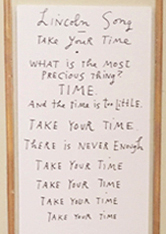 Lincoln Song
TAKE YOUR TIME
WHAT is the MOST
PRECIOUS THING?
TIME.
And the time is too little.
TAKE YOUR TIME
THERE is NEVER ENOUGH
TAKE YOUR TIME
TAKE YOUR TIME
TAKE YOUR TIME
TAKE YOUR TIME